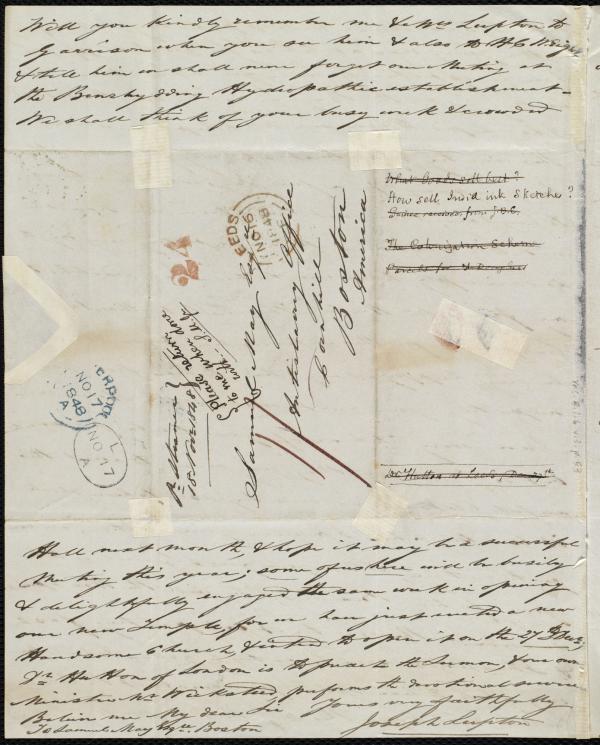 Will you kindly remember me & Mrs Lupton to
Garrison when you see him & also to H C Wright
& tell him we shall never forget our Meeting at
the Benrhydding Hydropathic establishment -
We shall think of your busy week & crowded
What Goods sell best?
How sell Ind'd ink Sketches?
The Colonization Scheme
Parcels for F. Douglass
Dr. Hutton at Leeds,
LEEDS
NO 16
1848
24
Samuel May Esqre
Antislavery Office
Cornhill
Boston
America
Please return
to me when done
with. S. M. Jr.
18 Nov. 1848
LIVERPOOL
NO 17
1848
A
L
NO 17
A
Hall next month, & hope it may be a successful
Meeting this year; some of us here will be busily
& delightfully engaged the same week in opening
our new Temple, for we have just erected a new
Handsome Church, & intend to open it on the 27th Decr;
Dr. Hutton of London is to preach the Sermon, & our own
Minister Mr Wicksteed performs the devotional service
Believe me My dear Sir Yours very faithfully
To Samuel May Esqre Boston Joseph Lupton